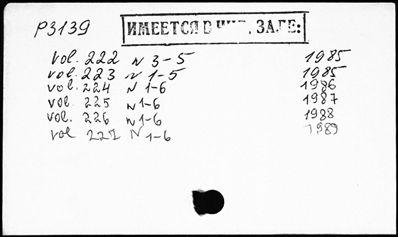 P3139
ИМЕЕТСЯ В ЗАЛЕ:
vol. 222 N 3-5 1985
vol. 223 N 1-5 1985
vol. 224 N 1-6 1986
vol. 225 N 1-6 1987
vol. 226 N 1-6 1988
vol 227 N 1-6 1989